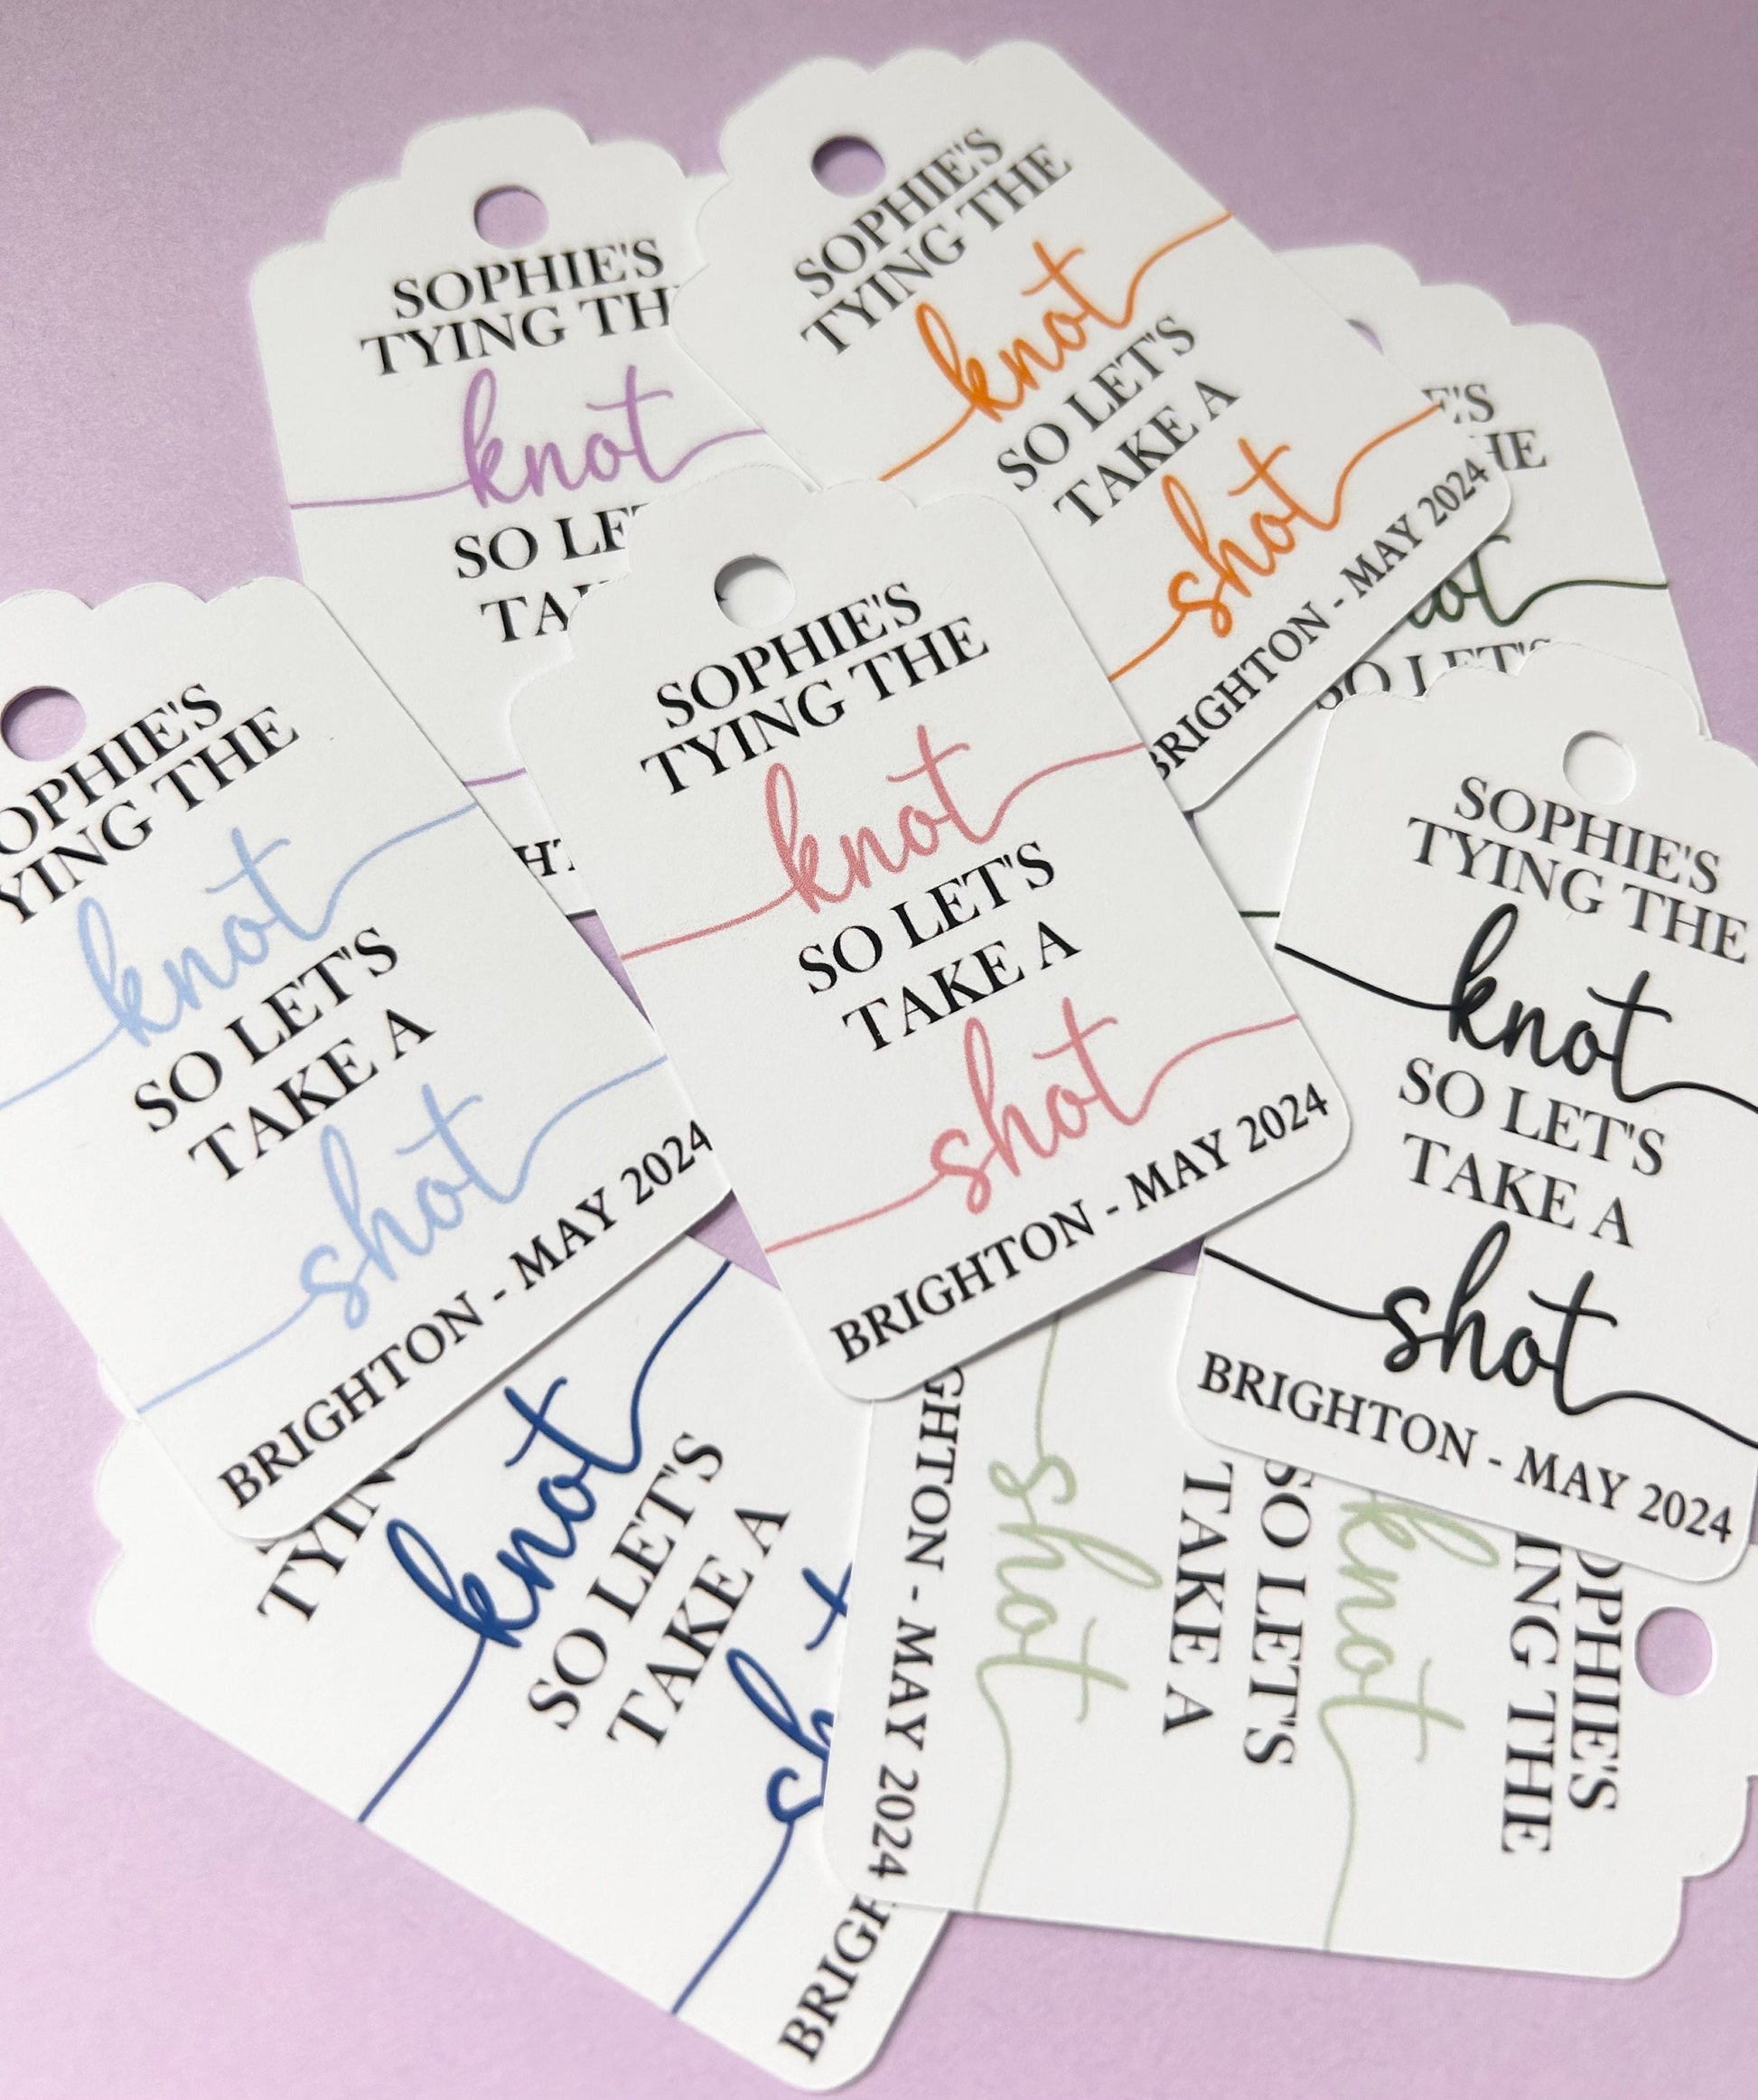 SOPHIE'S
TYING THE
knot
SO LET'S
TAKE A
shot
BRIGHTON - MAY 2024
SOPHIE'S
TYING
knot
SO
SOPHIE'S
TYING THE
knot
SO LET'S
TAKE A
shot
BRIGHTON - MAY 2024
SOPHIE'S
TYING THE
knot
SO LET'S
TAKE A
shot
BRIGHTON - MAY 2024
SO LET'S
SOPHIE'S
TYING THE
knot
SO LET'S
TAKE A
shot
BRIGHTON - MAY 2024
TYING
knot
SO LET'S
TAKE A
SOPHIE'S
TYING THE
knot
SO LET'S
TAKE A
shot
BRIGHTON - MAY 2024